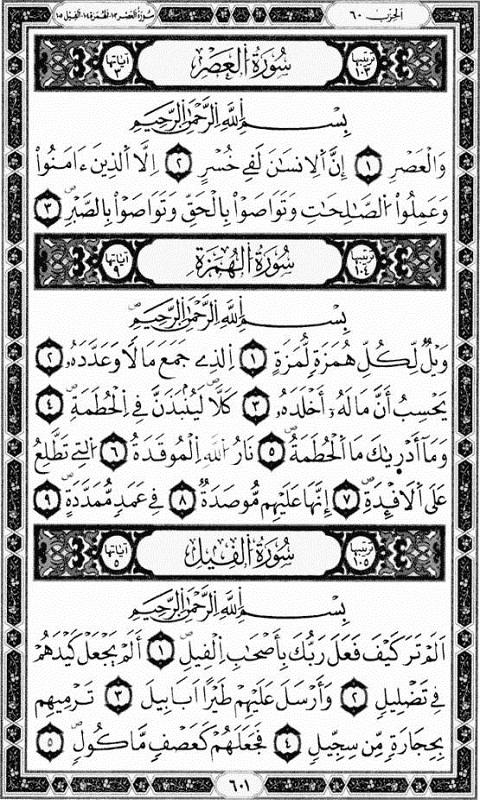 الحزب ٦٠
سورة العصر ١٠٣ الهمزة ١٠٤ الفيل ١٠٥
ترتيبها ١٠٣ سُورَةُ الْعَصْرِ آياتها ٣
بِسْمِ اللَّهِ الرَّحْمَٰنِ الرَّحِيمِ
وَالْعَصْرِ ١ إِنَّ اَلِانسَٰنَ لَفِے خُسْرٍ ٢ اِلَّا اَلذِينَ ءَامَنُواْ
وَعَمِلُواْ اُلصَّٰلِحَٰتِ وَتَوَاصَوْاْ بِالْحَقِّ وَتَوَاصَوْاْ بِالصَّبْرِۖ ٣
ترتيبها ١٠٤ سُورَةُ الْهُمَزَةِ آياتها ٩
بِسْمِ اللَّهِ الرَّحْمَٰنِ الرَّحِيمِ
وَيْلٌ لِّكُلِّ هُمَزَةٖ لُّمَزَةٍ ١ اِلذِے جَمَعَ مَالاٗ وَعَدَّدَهُۥ ٢
يَحْسِبُ أَنَّ مَالَهُۥٓ أَخْلَدَهُۥۖ ٣ كَلَّاۖ لَيُنۢبَذَنَّ فِے اِلْحُطَمَةِۖ ٤
وَمَآ أَدْر۪يٰكَ مَا اَلْحُطَمَةُۖ ٥ نَارُ اُللَّهِ اِلْمُوقَدَةُ ٦ اُلتِے تَطَّلِعُ
عَلَى اَلَافْـِٕدَةِۖ ٧ إِنَّهَا عَلَيْهِم مُّوصَدَةٌ ٨ فِے عَمَدٖ مُّمَدَّدَةِۖ ٩
ترتيبها ١٠٥ سُورَةُ الْفِيلِ آياتها ٥
بِسْمِ اللَّهِ الرَّحْمَٰنِ الرَّحِيمِ
اَلَمْ تَرَ كَيْفَ فَعَلَ رَبُّكَ بِأَصْحَٰبِ اِلْفِيلِۖ ١ أَلَمْ يَجْعَلْ كَيْدَهُمْ
فِے تَضْلِيلٖ ٢ وَأَرْسَلَ عَلَيْهِمْ طَيْراً اَبَابِيلَ ٣ تَرْمِيهِم
بِحِجَارَةٖ مِّن سِجِّيلٖ ٤ فَجَعَلَهُمْ كَعَصْفٖ مَّاكُولٖۖ ٥
٦٠١